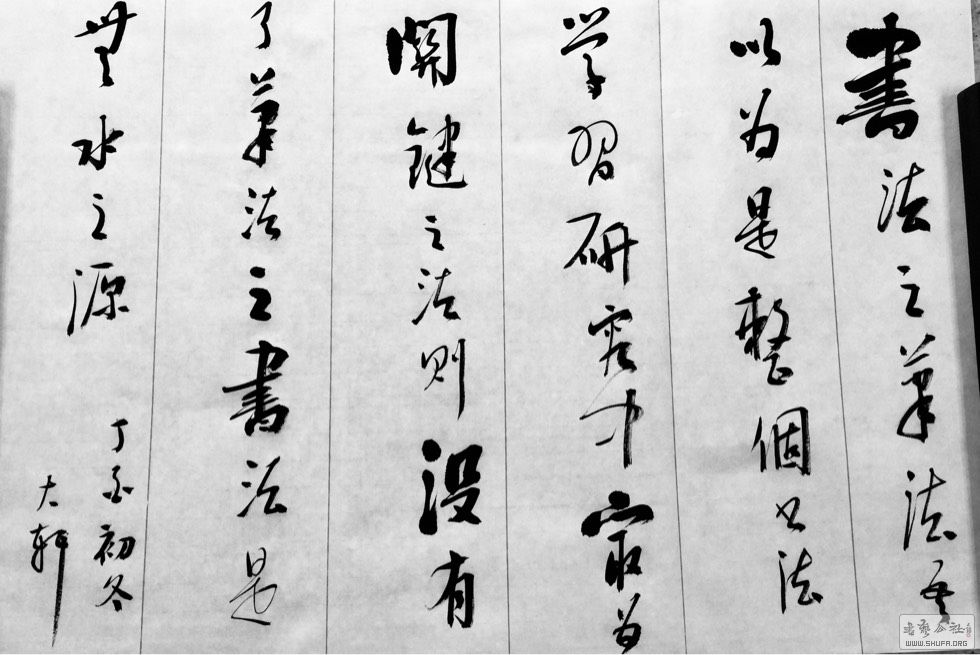 書法之筆法吾
以为是整個书法
学習研究中最为
関鍵之法则没有
了筆法之書法是
無水之源
丁酉初冬
大軒
书艺公社
WWW.SHUFA.ORG